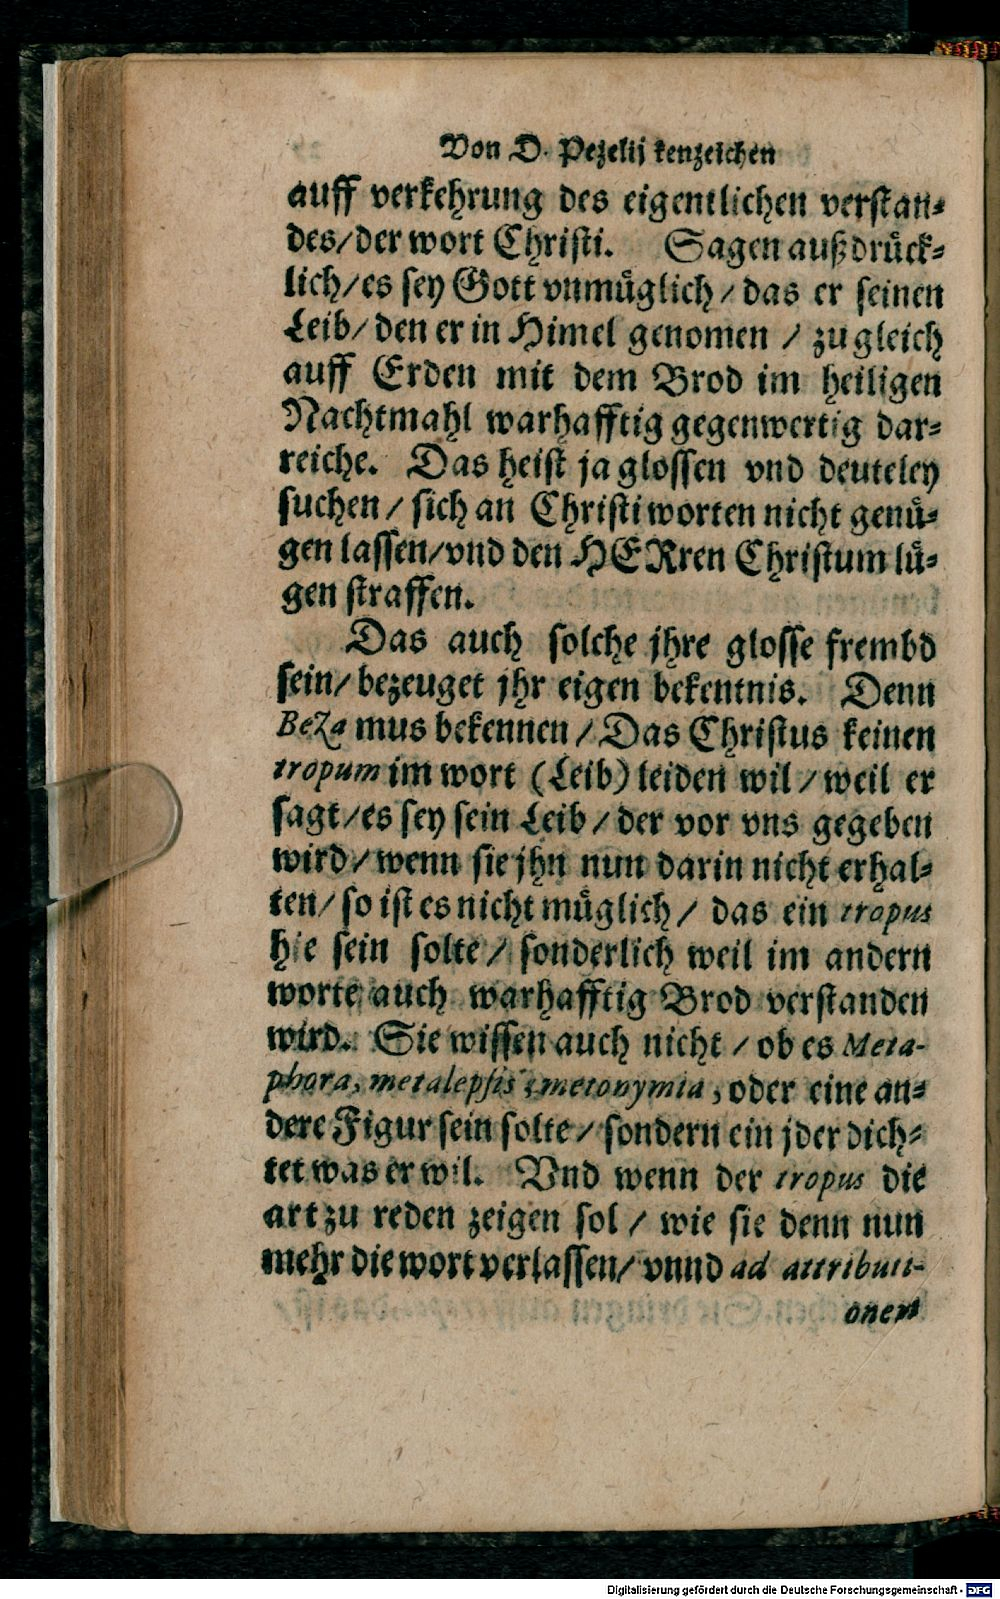 Von D. Pezelij kenzeichen
auff verkehrung des eigentlichen verstan-
des/der wort Christi. Sagen außdrück-
lich/es sey Gott vnmüglich/das er seinen
Leib/den er in Himel genomen/zu gleich
auff Erden mit dem Brod im heiligen
Nachtmahl warhafftig gegenwertig dar-
reiche. Das heist ja glossen vnd deuteley
suchen/sich an Christi worten nicht genü-
gen lassen/vnd den HERren Christum lü-
gen straffen.
Das auch solche jhre glosse frembd
sein/bezeuget jhr eigen bekentnis. Denn
Beza mus bekennen/Das Christus keinen
tropum im wort (Leib) leiden wil/weil er
sagt/es sey sein Leib/der vor vns gegeben
wird/wenn sie jhn nun darin nicht erhal-
ten/so ist es nicht müglich/das ein tropus
hie sein solte/sonderlich weil im andern
worte auch warhafftig Brod verstanden
wird. Sie wissen auch nicht/ob es Meta-
phora, metalepsis, metonymia, oder eine an-
dere Figur sein solte/sondern ein jder dich-
tet was er wil. Vnd wenn der tropus die
art zu reden zeigen sol/wie sie denn nun
mehr die wort verlassen/vnnd ad attributi-
onem
Digitalisierung gefördert durch die Deutsche Forschungsgemeinschaft - DFG